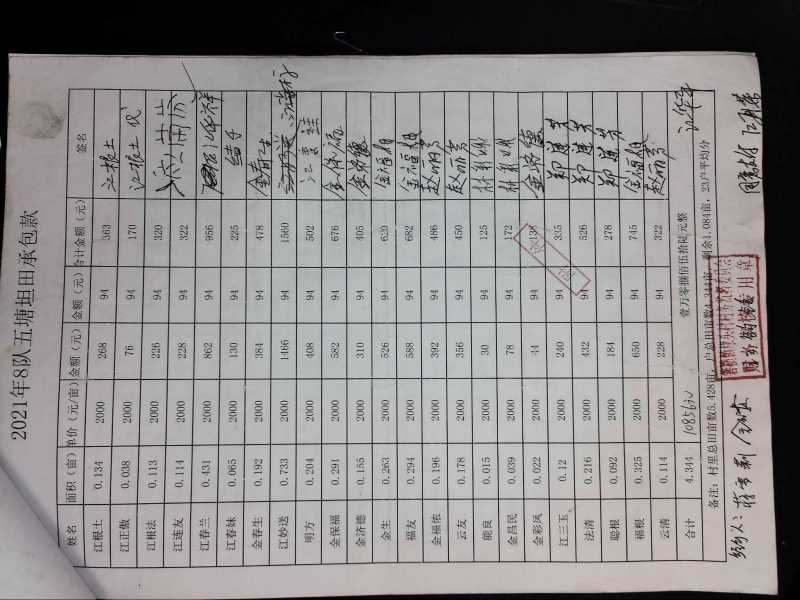 2021年8队五塘坦田承包款
姓名 面积（亩） 单价（元/亩） 金额（元） 金额（元） 合计金额（元） 签名
江根土 0.134 2000 268 94 363 江根土
江正傲 0.038 2000 76 94 170 江根土代
江根法 0.113 2000 226 94 320
江连友 0.114 2000 228 94 322
江春兰 0.431 2000 862 94 956
江春妹 0.065 2000 130 94 225
金春生 0.192 2000 384 94 478 金春生
江妙送 0.733 2000 1466 94 1560
明方 0.204 2000 408 94 502
金保福 0.291 2000 582 94 676 金保福
金济德 0.155 2000 310 94 405 金济德
金生 0.263 2000 526 94 620
福友 0.294 2000 588 94 682
金福侬 0.196 2000 392 94 486 赵丽芳
云友 0.178 2000 356 94 450 赵丽芳
能良 0.015 2000 30 94 125
金昌民 0.039 2000 78 94 172
金彩凤 0.022 2000 44 94 138
江三玉 0.12 2000 240 94 335 郑建芳
法清 0.216 2000 432 94 526 郑建芳
聪根 0.092 2000 184 94 278 郑建芳
福根 0.325 2000 650 94 745
云清 0.114 2000 228 94 322 赵丽芳
合计 4.344 10856元 壹万零捌佰伍拾陆元整 江华平
备注：村里总田亩数5.428亩，户总田亩数4.344亩，剩余1.084亩，23户平均分
财务专用章